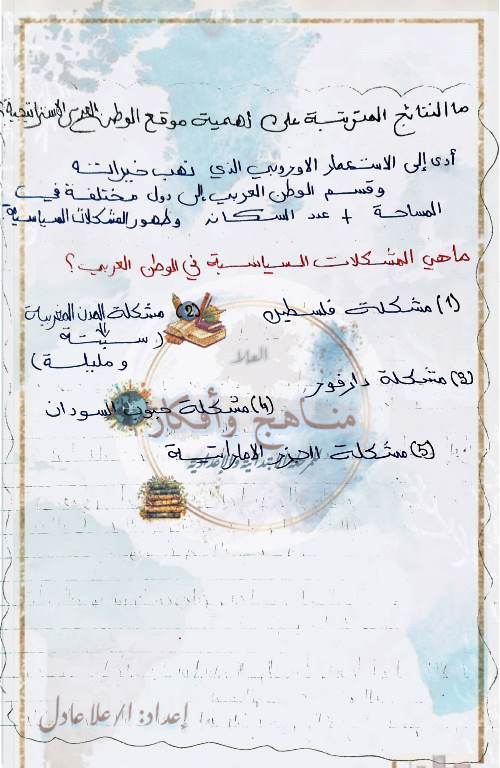 ما النتائج المترتبة على أهمية موقع الوطن العربي الاستراتيجية؟
أدى إلى الاستعمار الاوروبي الذي نهب خيراته
وقسم الوطن العربي إلى دول مختلفة في
المساحة + عدد السكان وظهور المشكلات السياسية
ماهي المشكلات السياسية في الوطن العربي؟
(1) مشكلة فلسطين (2) مشكلة المدن المغربية
(سبتة
ومليلة)
العلا
(3) مشكلة دارفور
(4) مشكلة جنوب السودان
مناهج وأفكار
(5) مشكلة الجزر الاماراتية
إعداد: ا/علا عادل